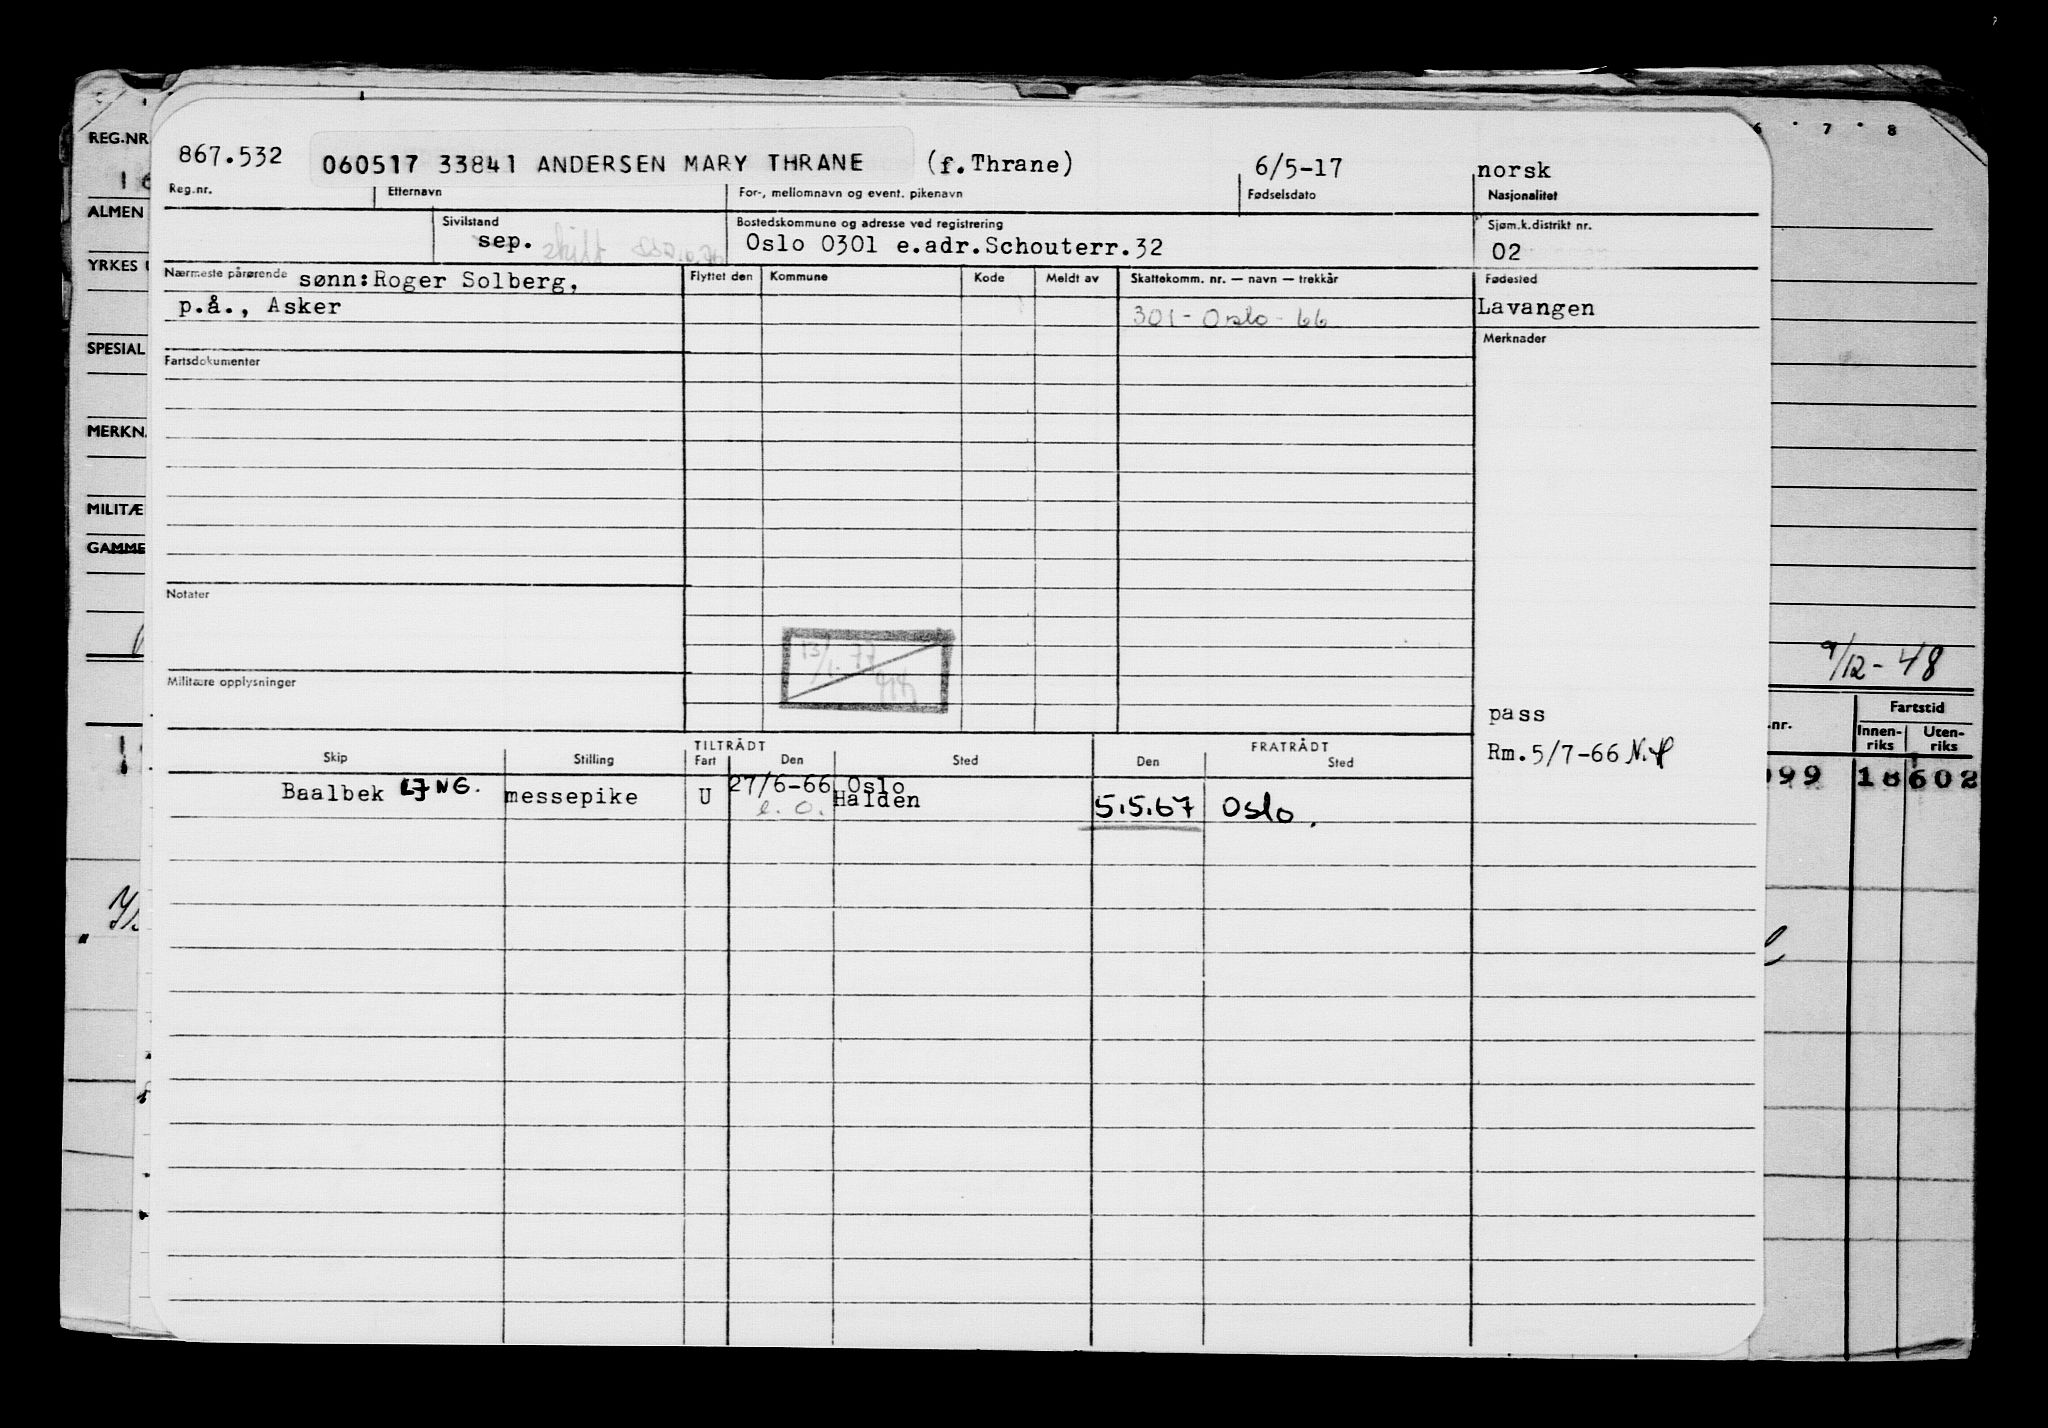 6 · 7 · 8
REG.NR
867.532 060517 33841 ANDERSEN MARY THRANE (f.Thrane) 6/5-17 norsk
Reg.nr. Etternavn For-, mellomnavn og event. pikenavn Fødselsdato Nasjonalitet
ALMEN
Sivilstand Bostedskommune og adresse ved registrering Sjøm.k.distrikt nr.
sep. skilt Oslo 0301 e.adr.Schouterr.32 02
YRKES
Nærmeste pårørende sønn:Roger Solberg, Flyttet den Kommune Kode Meldt av Skattekomm. nr. — navn — trekkår Fødested
p.å., Asker 301-Oslo-66 Lavangen
SPESIAL
Merknader
Fartsdokumenter
MERKN.
MILITÆ
GAMME
Notater
13/1-77
9/12-48
Militære opplysninger
pass
.nr. Fartstid
Innen-riks Uten-riks
Rm.5/7-66
TILTRÅDT FRATRÅDT
Skip Stilling Fart Den Sted Den Sted
Baalbek LJNG. messepike U 27/6-66 Oslo
e.o. Halden 5.5.67 Oslo.
099 18 602